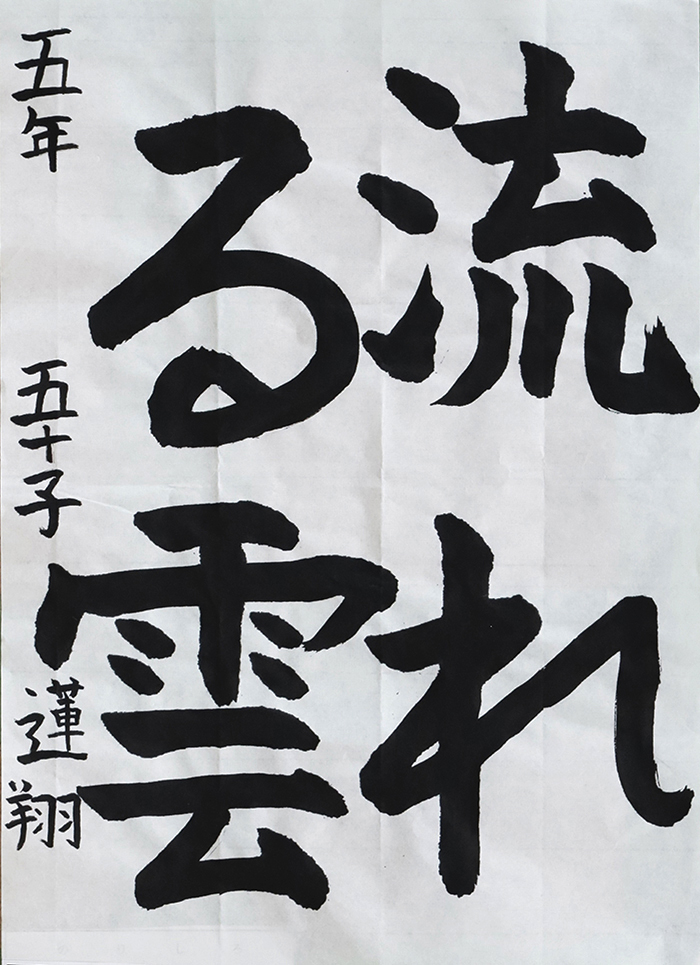 流れ
る雲
五年 五十子 蓮翔